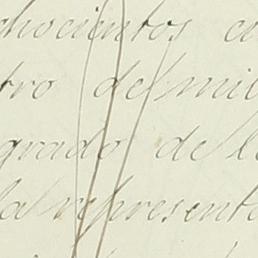 chocientos c
tro de mil
grado de l
la represent